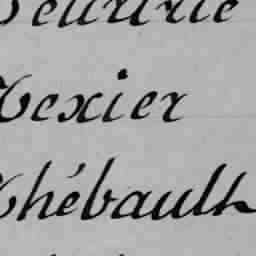 Texier
Thébault